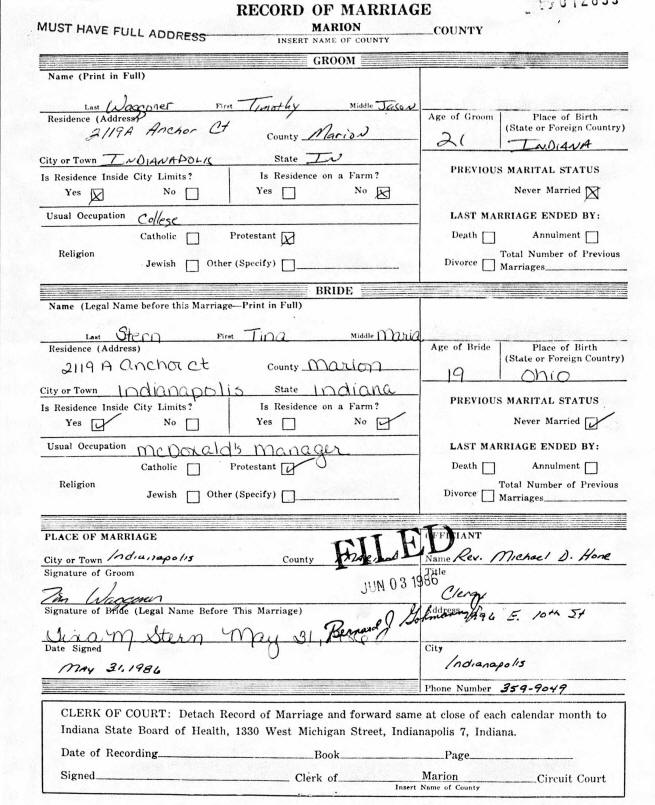 RECORD OF MARRIAGE
MUST HAVE FULL ADDRESS MARION COUNTY
INSERT NAME OF COUNTY
GROOM
Name (Print in Full)
Last Waggoner First Timothy Middle Jason
Residence (Address) 2119A Anchor Ct County Marion
Age of Groom 21 Place of Birth (State or Foreign Country) INDIANA
City or Town INDIANAPOLIS State IN
Is Residence Inside City Limits? Is Residence on a Farm?
Yes No Yes No
PREVIOUS MARITAL STATUS
Never Married
Usual Occupation College
LAST MARRIAGE ENDED BY:
Religion Catholic Protestant
Jewish Other (Specify)
Death Annulment
Divorce Total Number of Previous Marriages
BRIDE
Name (Legal Name before this Marriage—Print in Full)
Last Stern First Tina Middle Maria
Residence (Address) 2119 A Anchor ct County Marion
Age of Bride 19 Place of Birth (State or Foreign Country) Ohio
City or Town Indianapolis State Indiana
Is Residence Inside City Limits? Is Residence on a Farm?
Yes No Yes No
PREVIOUS MARITAL STATUS
Never Married
Usual Occupation McDonald's Manager
LAST MARRIAGE ENDED BY:
Religion Catholic Protestant
Jewish Other (Specify)
Death Annulment
Divorce Total Number of Previous Marriages
PLACE OF MARRIAGE
City or Town Indianapolis County
FILED
JUN 03 1986
OFFICIANT
Name Rev. Michael D. Hone
Signature of Groom
Tim Waggoner
Title
Clergy
Signature of Bride (Legal Name Before This Marriage)
Tina M Stern May 31,
Bernard J
Address E. 10th St
Date Signed
May 31, 1986
City
Indianapolis
Phone Number 359-9049
CLERK OF COURT: Detach Record of Marriage and forward same at close of each calendar month to
Indiana State Board of Health, 1330 West Michigan Street, Indianapolis 7, Indiana.
Date of Recording Book Page
Signed Clerk of Marion Circuit Court
Insert Name of County